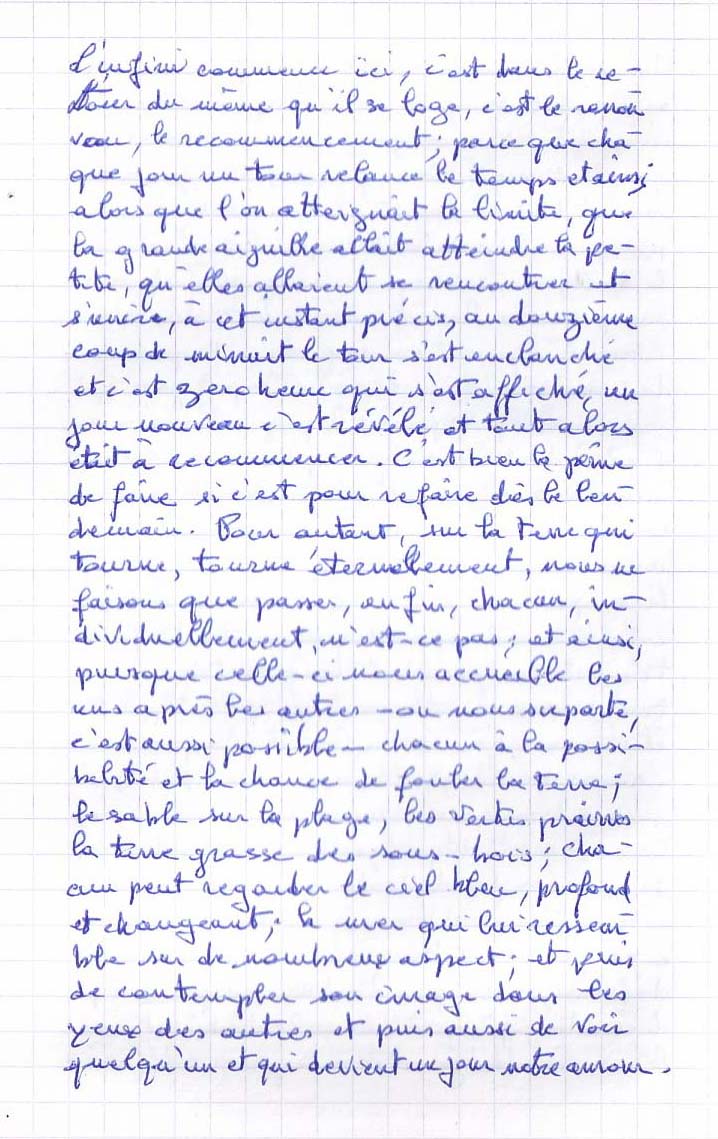 L'infini commence ici, c'est dans le re-
tour du même qu'il se loge, c'est le renou
veau, le recommencement; parce que cha-
que jour un tour relance le temps et ainsi
alors que l'on atteignait la limite, que
la grande aiguille allait atteindre la pe-
tite, qu'elles allaient se rencontrer et
s'unire, à cet instant précis, au douzième
coup de minuit le tour s'est enclenché
et c'est zero heure qui s'est affiché, un
jour nouveau c'est révélé et tout alors
était à recommencer. C'est bien la peine
de faire si c'est pour refaire dès le len
demain. Pour autant, sur la Terre qui
tourne, tourne éternellement, nous ne
faisons que passer, enfin, chacun, in-
dividuellement, n'est-ce pas; et ainsi,
puisque celle-ci nous accueille les
uns après les autres - ou nous suporte,
c'est aussi possible - chacun à la possi-
bilité et la chance de fouler la Terre;
le sable sur la plage, les vertes prairies
la terre grasse des sous-bois; cha-
cun peut regarder le ciel bleu, profond
et changeant; la mer qui lui ressem
ble sur de nombreux aspect; et puis
de contempler son image dans les
yeux des autres et puis aussi de voir
quelqu'un et qui devient un jour notre amour.